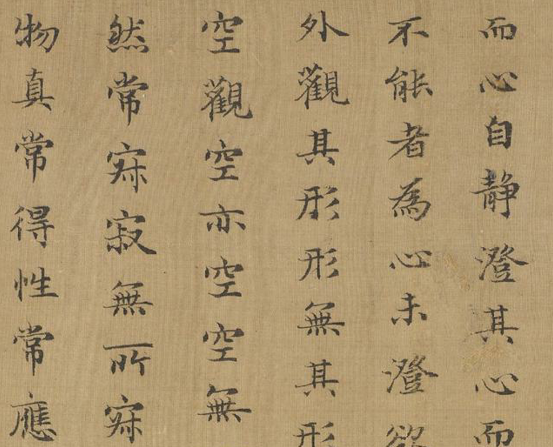 而心自静澄其心而
不能者為心未澄欲
外觀其形形無其形
空觀空亦空空無
然常寂寂無所寂
物真常得性常應